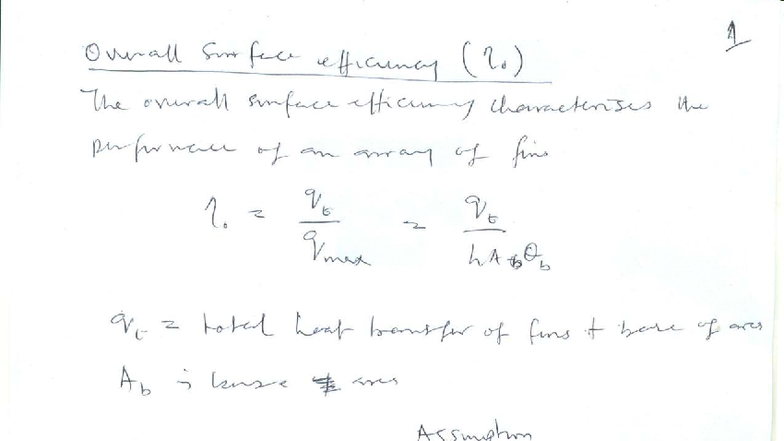 1
Overall surface efficiency (η₀)
The overall surface efficiency characterises the
performance of an array of fins
η₀ = q_t / q_max = q_t / h A_b θ_b
q_t = total heat transfer of fins + base of area
A_b is base area
Assumption